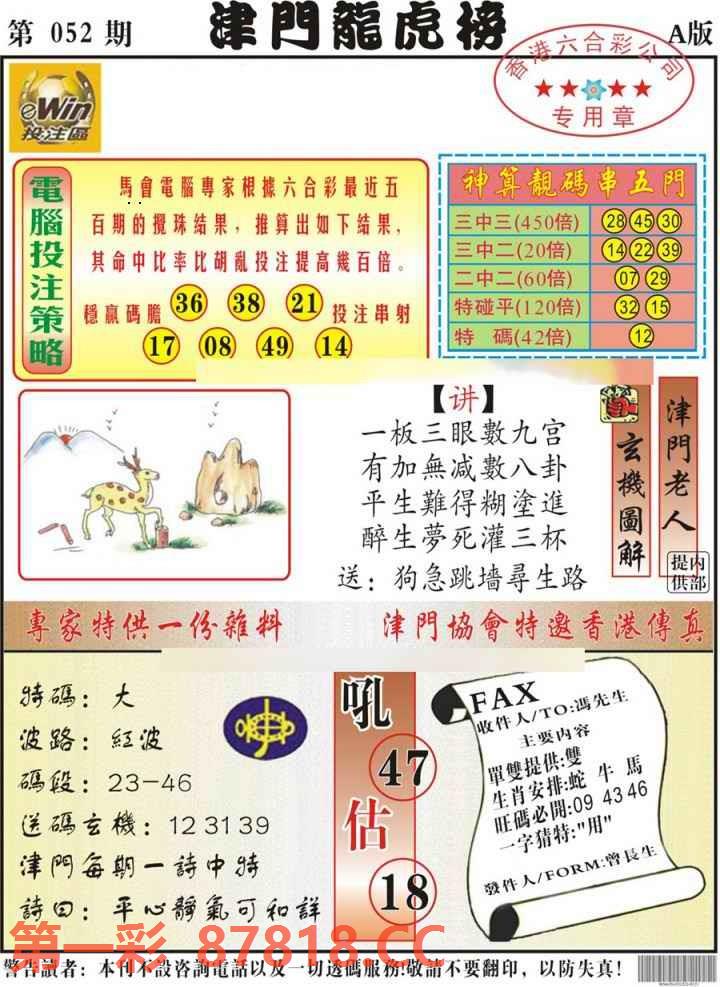 第 052 期
津門龍虎榜
A版
香港六合彩公司
专用章
eWin
投注區
電腦投注策略
馬會電腦專家根據六合彩最近五
百期的攪珠结果，推算出如下结果，
其命中比率比胡亂投注提高幾百倍。
穩贏碼膽 36 38 21 投注串射
17 08 49 14
神算靚碼串五門
三中三(450倍) 28 45 30
三中二(20倍) 14 22 39
二中二(60倍) 07 29
特碰平(120倍) 32 15
特 碼(42倍) 12
【讲】
一板三眼數九宫
有加無减數八卦
平生難得糊塗進
醉生夢死灌三杯
送：狗急跳墙尋生路
玄機圖解
津門老人
内部提供
專家特供一份雜料
津門協會特邀香港傳真
特碼：大
波路：紅波
碼段：23-46
送碼玄機：12 31 39
津門每期一詩中特
詩曰：平心靜氣可和詳
吼
47
估
18
FAX
收件人/TO:馮先生
主要内容
單雙提供:雙
生肖安排:蛇 牛 馬
旺碼必開:09 43 46
一字猜特:"用"
發件人/FORM:曾長生
第一彩 87818.CC
警告读者：本刊不設咨詢電話以及一切透碼服務!敬請不要翻印，以防失真!